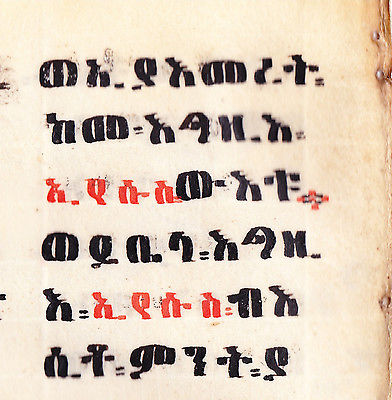 ወኢያእመረት፡
ከመ፡እግዚእ፡
ኢየሱስውእቱ።
ወይቤላ፡እግዚ
እ፡ኢየሱስ፡ብእ
ሲቶ፡ምንት፡ያ